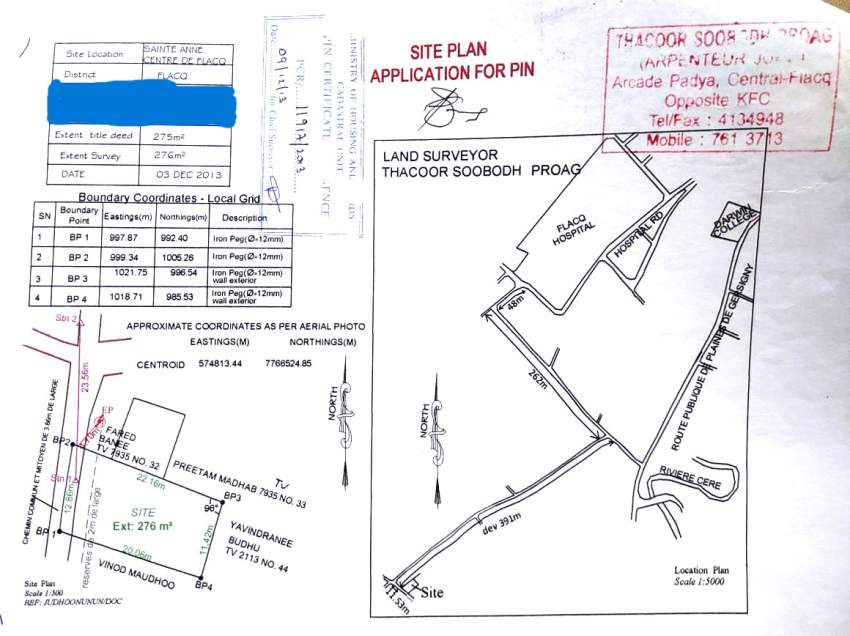 Site Location
SAINTE ANNE
CENTRE DE FLACQ
District
FLACQ
Extent title deed
275m²
Extent Survey
276m²
DATE
03 DEC 2013
MINISTRY OF HOUSING AND
CADASTRAL UNIT
PIN CERTIFICATE
PCR
119/7/2013
Date
09/12/13
for Chief Surveyor
SITE PLAN
APPLICATION FOR PIN
THACOOR SOOBODH PROAG
ARPENTEUR JURE
Arcade Padya, Central-Flacq
Opposite KFC
Tel/Fax : 4134948
Mobile : 761 3713
Boundary Coordinates - Local Grid
SN Boundary Point Eastings(m) Northings(m) Description
1 BP 1 997.87 992.40 Iron Peg(Ø-12mm)
2 BP 2 999.34 1005.26 Iron Peg(Ø-12mm)
3 BP 3 1021.75 996.54 Iron Peg(Ø-12mm)
wall exterior
4 BP 4 1018.71 985.53 Iron Peg(Ø-12mm)
wall exterior
APPROXIMATE COORDINATES AS PER AERIAL PHOTO
EASTINGS(M) NORTHINGS(M)
CENTROID 574813.44 7766524.85
Stn 2
23.56m
EP
FARED
BANEE
TV 7935 NO. 32
BP2
Stn 1
12.86m
CHEMIN COMMUN ET MITOYEN DE 3.66m DE LARGE
reserves de 2m de large
22.16m
PREETAM MADHAB
TV
7935 NO. 33
BP3
96°
SITE
Ext: 276 m²
11.42m
YAVINDRANEE
BUDHU
TV 2113 NO. 44
BP 1
20.06m
VINOD MAUDHOO
BP4
NORTH
Site Plan
Scale 1:500
REF: JUDHOONUNUN/DOC
LAND SURVEYOR
THACOOR SOOBODH PROAG
FLACQ
HOSPITAL
HOSPITAL RD
DARWIN
COLLEGE
48m
262m
ROUTE PUBLIQUE DE PLAINES DE GERSIGNY
NORTH
RIVIERE CERE
dev 391m
Site
11.53m
Location Plan
Scale 1:5000